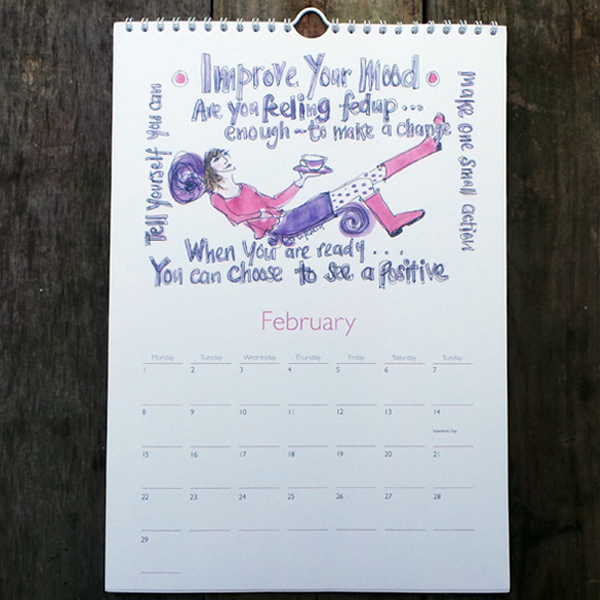 Improve Your Mood
Are you feeling fedup...
enough - to make a change
Tell Yourself You can
Make one small action
When You are ready....
You can choose to see a Positive
February
Monday Tuesday Wednesday Thursday Friday Saturday Sunday
1 2 3 4 5 6 7
8 9 10 11 12 13 14
Valentine's Day
15 16 17 18 19 20 21
22 23 24 25 26 27 28
29